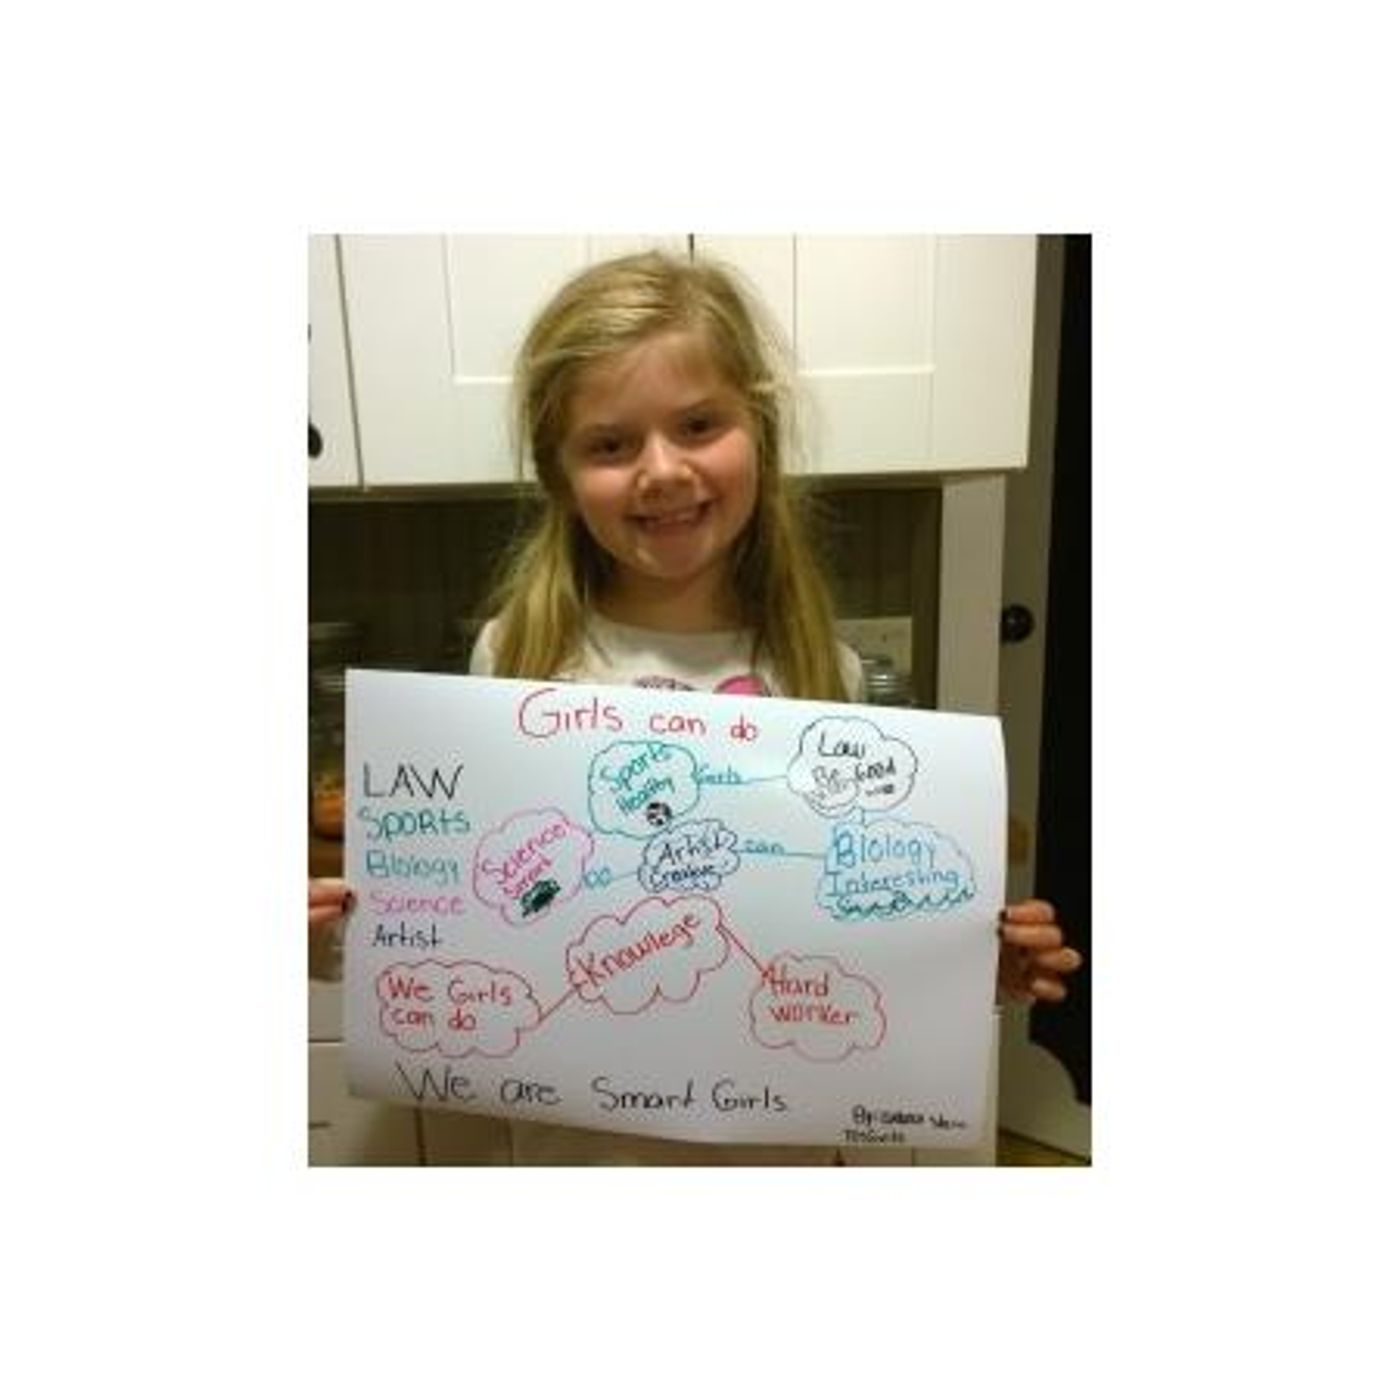 Girls can do
LAW
SPORTS
Biology
Science
Artist
Sports
Healthy
Girls
Law
Good
Science
Smart
DO
Artist
Creative
can
Biology
Interesting
Knowlege
We Girls
can do
Hard
worker
We are Smart Girls
By: